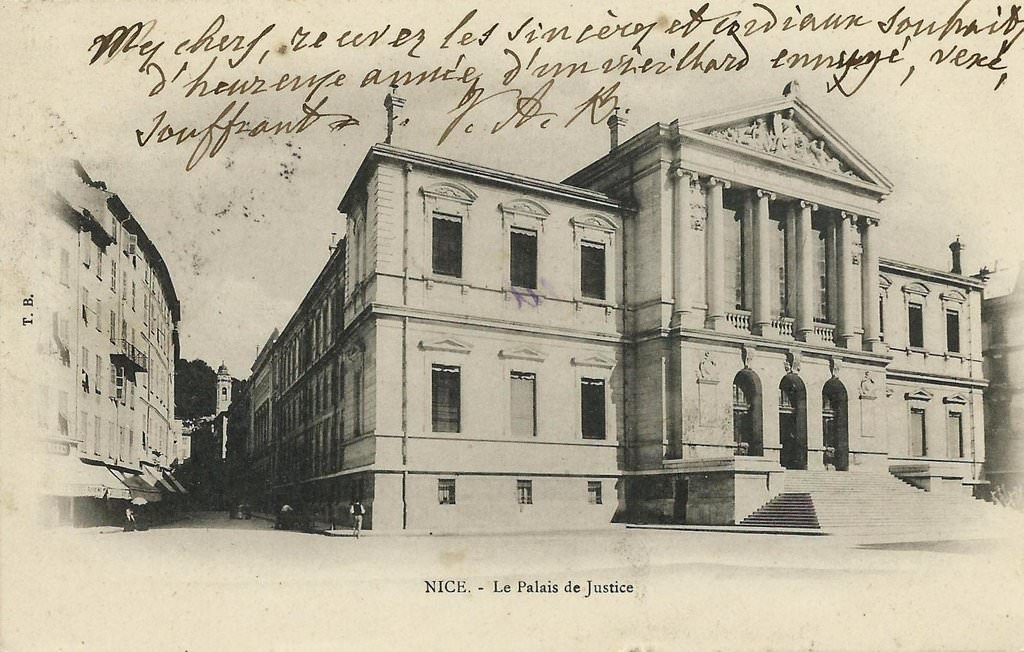 My chers, recevez les sincères et cordiaux souhaits
d'heureuse année, d'un vieillard ennuyé, vexé,
souffrant
T. B.
NICE. - Le Palais de Justice